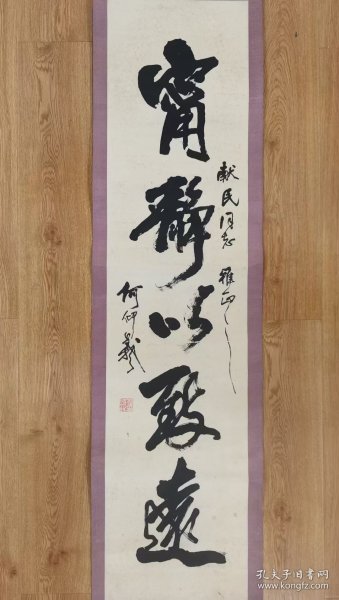 甯靜以致遠
献民同志 雅正
何仰羲
孔夫子旧书网
www.kongfz.com